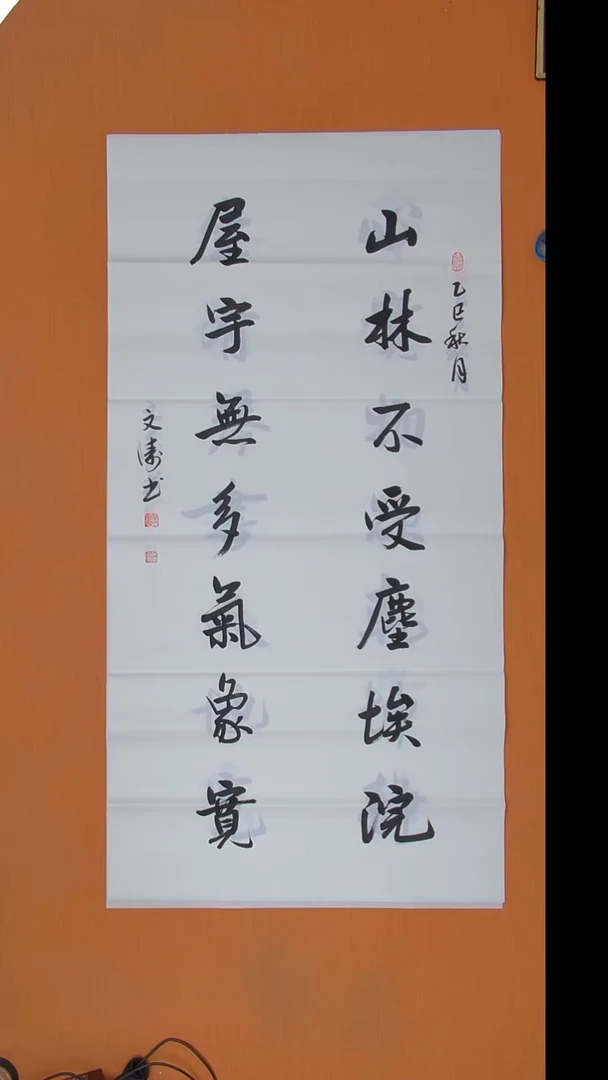 乙巳秋月
山林不受塵埃浣
屋宇無多氣象寬
文涛书